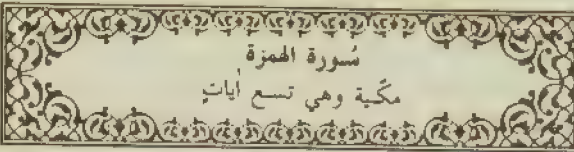 سُورة الهمزة
مكّية وهي تسع أياتٍ